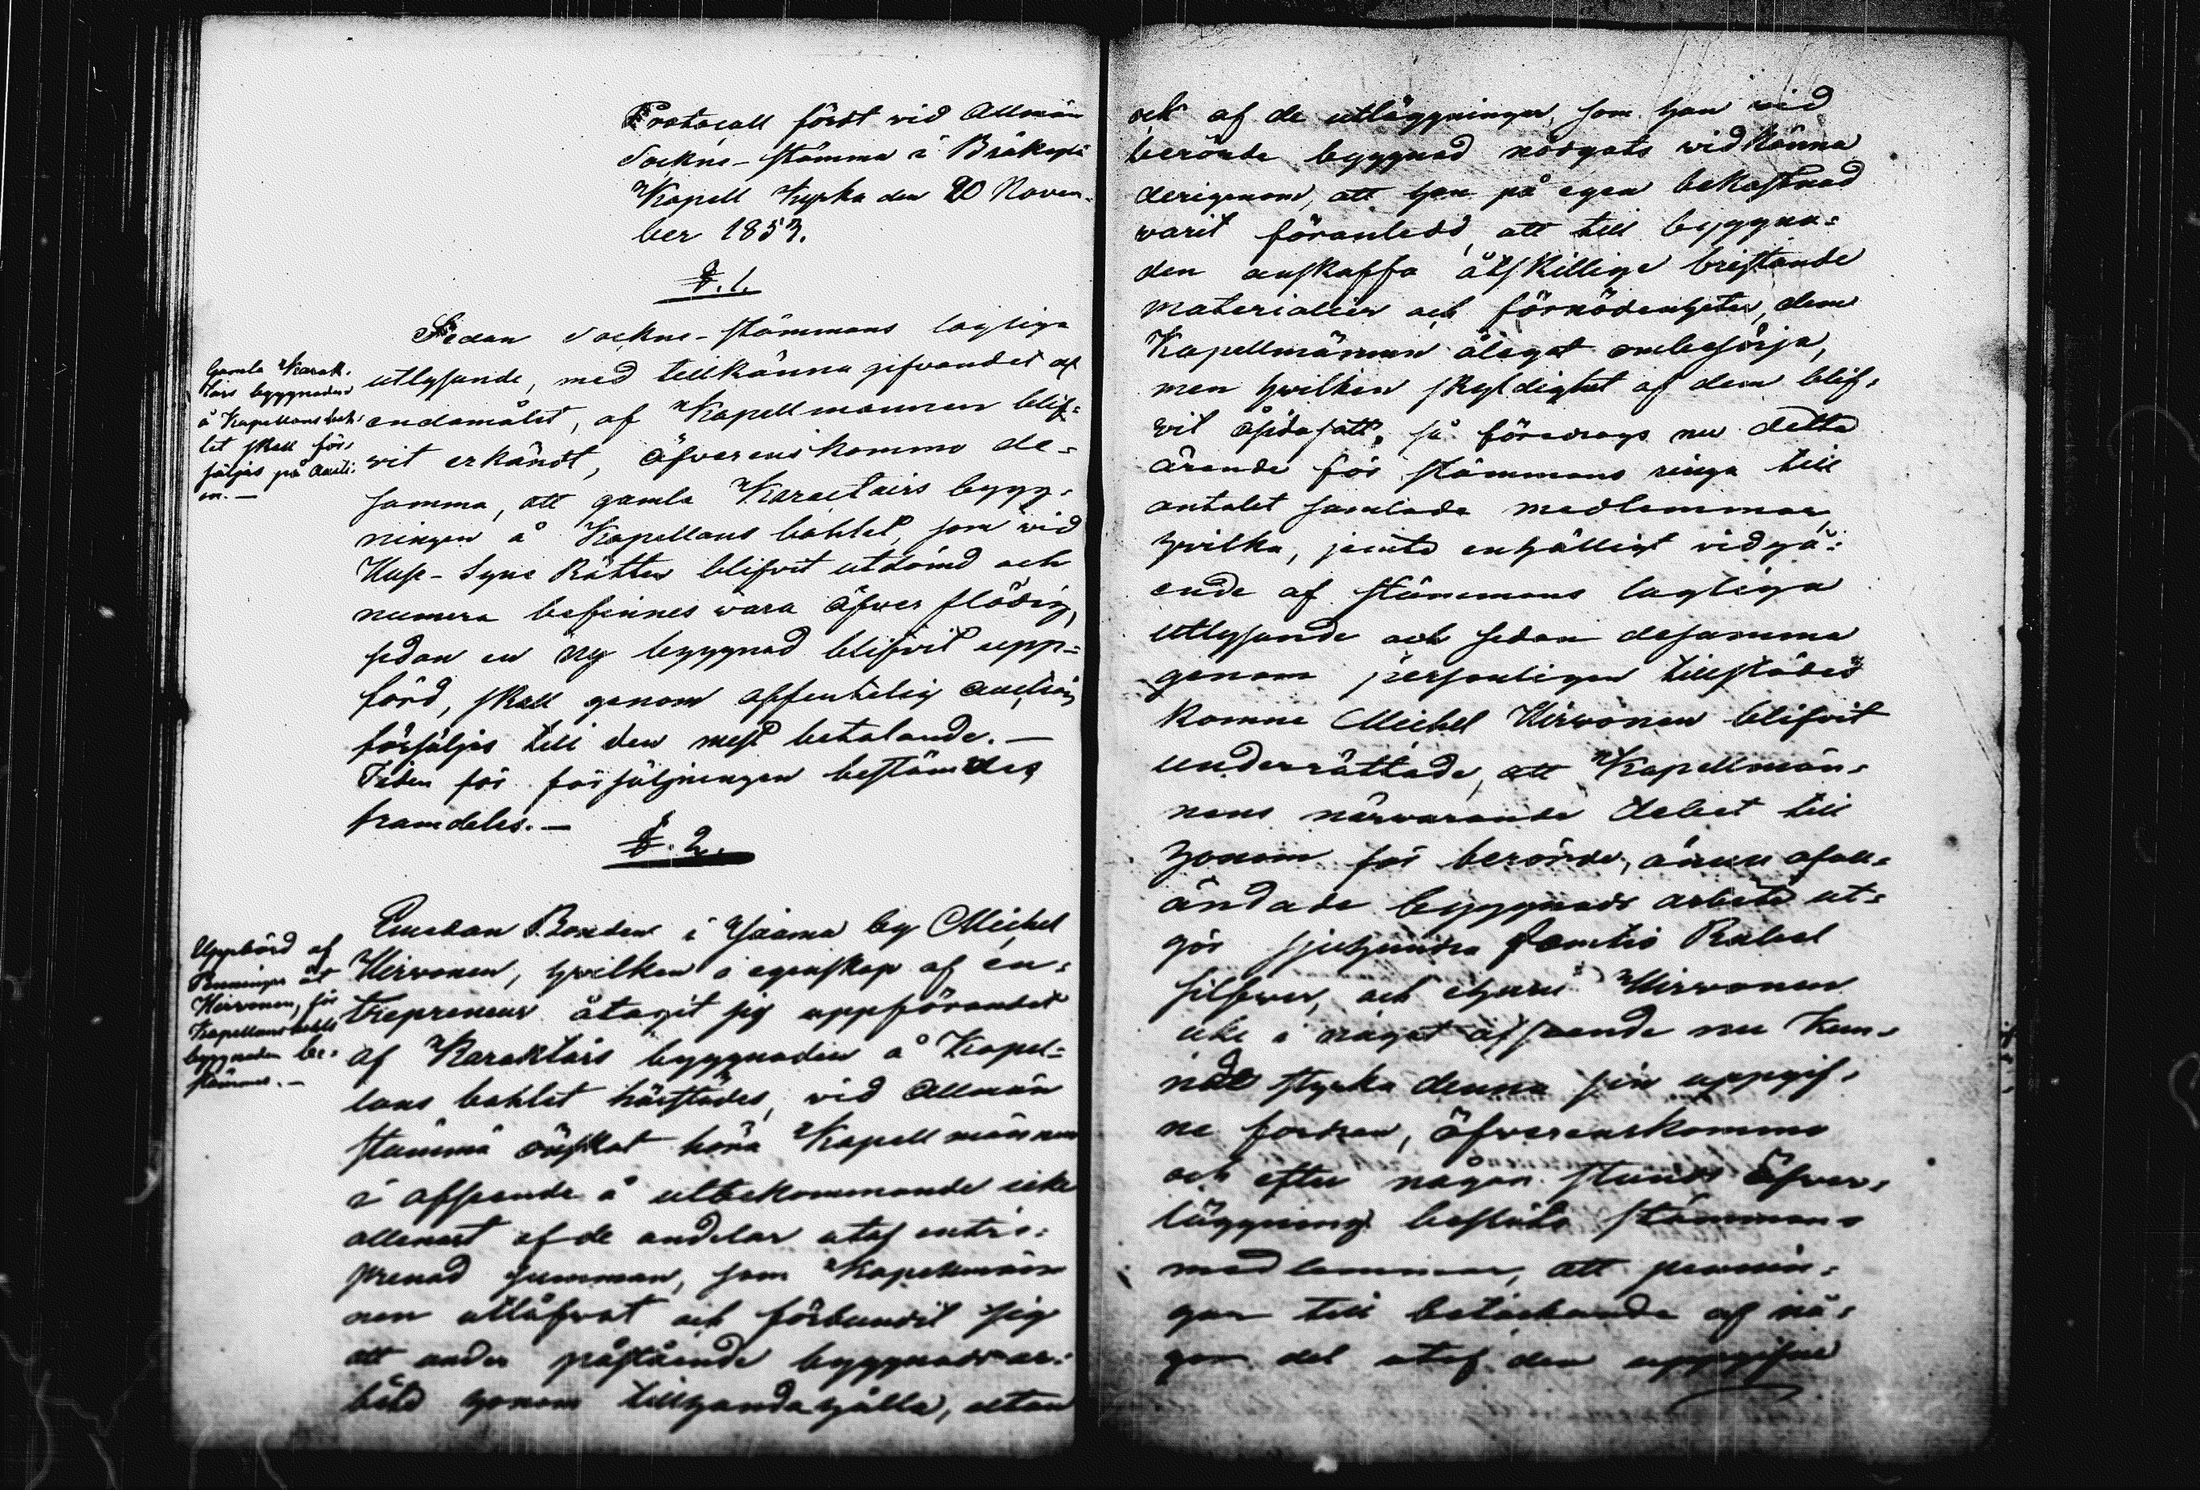 Protocall fördt vid Allmän
Sockne-stämma i Bräkylä
Kapell Kyrka den 20 Novem-
ber 1853.
§. 1.
Sedan Sockne-stämmans lagliga
utlysande, med tillkänna gifvandet af
endamålet, af Kapellmannen blif-
vit erkändt, öfverenskommo de-
samma, att gamla Karactairs bygg-
ningen å Kapellans bohlet, som vid
Huse-Syne Rätten blifvit utdömd och
numera befinnes vara öfver flödig,
sedan en ny byggnad blifvit upp-
förd, skall genom offentelig auction
försäljas till den mest betalande. —
Tiden för försäljningen bestämdes
framdeles. —
Gamla Karak-
tärs byggnaden
å Kapellans boh-
let skall för-
säljas på Aucti-
on. —
§. 2.
Bonden i by Michel
Hirvonen, hvilken i egenskap af en-
trepreneur åtagit sig uppförandet
af Karaktärs byggnaden å Kapel-
lans bohlet härstädes, vid Allmän
stämma önskat höra Kapellmännen
i afseende å utbekommande icke
allenast af de andelar utaf entre-
prenad summan, som Kapellmän
nen utlåfvat och förbundit sig
att under påstående byggnads ar-
bete honom tillhandahålla, utan
Uppbörd af
Penningar åt
Hirvonen, för
Kapellans bohls
byggnaden be-
stämmes. —
ock af de utläggningar, som han vid
berörde byggnad nödgats vidkänna
derigenom, att han på egen bekostnad
varit föranledd, att till byggna-
den anskaffa åtskillige bristande
materialier och förnödenheter, dem
Kapellmännen ålegat ombesörja,
men hvilken skyldighet af dem blif-
vit åsidosatt, så föredrogs nu detta
ärende för stämmans ringa till
antalet samlade medlemmar,
hvilka, jemte enhälligt vidgå-
ende af stämmans lagliga
utlysande och sedan desamma
genom personligen tillstädes
komne Michel Hirvonen blifvit
underrättade, att Kapellmän-
nens närvarande debet till
honom för berörde, ännu ofull-
ändade byggnads arbete ut-
gör sjuhundra femtio Rubel
silfver, och ehuru Hirvonen
icke i något afseende nu kun-
nat styrka denna sin uppgif-
ne fordran, öfverenskommo
och efter någon stunds öfver-
läggning beslöto stämmans
medlemmar, att pennin-
gar till betäckande af nå-
gon del utaf den uppgifne